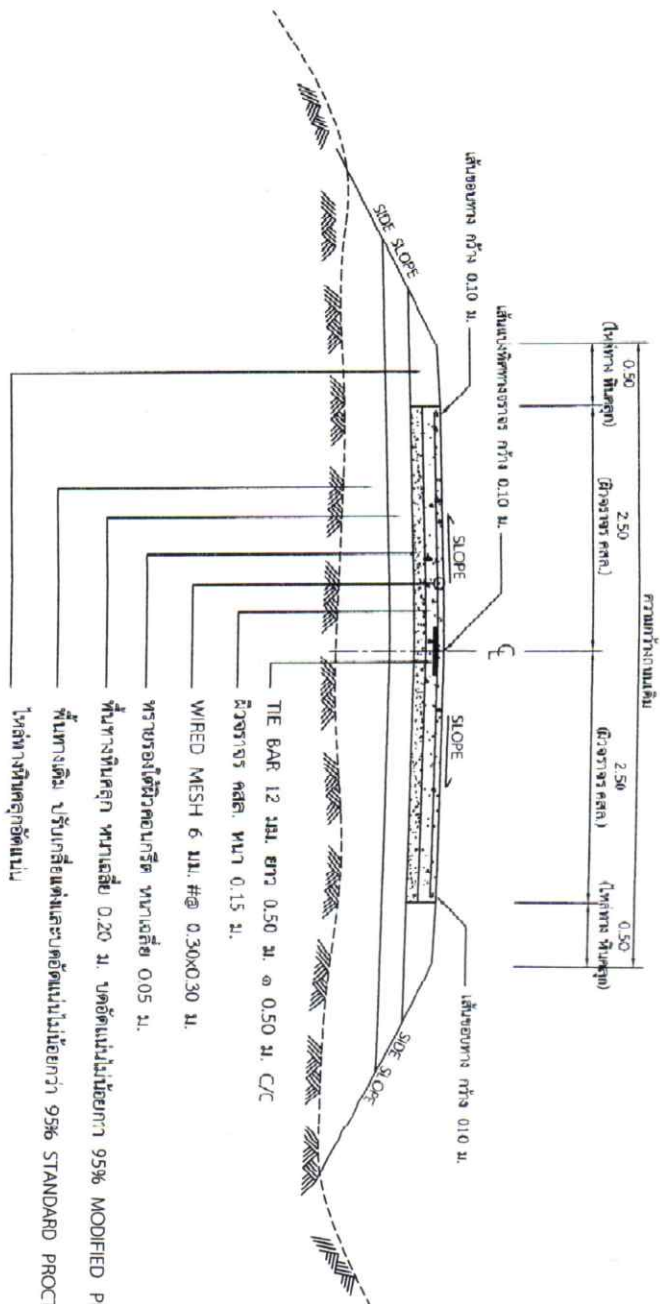 ความกว้างถนนเดิม
0.50 2.50 2.50 0.50
(ไหล่ทาง หินคลุก) (ผิวจราจร คสล.) (ผิวจราจร คสล.) (ไหล่ทาง หินคลุก)
เส้นแบ่งทิศทางจราจร กว้าง 0.10 ม.
เส้นขอบทาง กว้าง 0.10 ม.
เส้นขอบทาง กว้าง 010 ม.
SLOPE SLOPE
SIDE SLOPE SIDE SLOPE
TIE BAR 12 มม. ยาว 0.50 ม. @ 0.50 ม. C/C
ผิวจราจร คสล. หนา 0.15 ม.
WIRED MESH 6 มม. #@ 0.30x0.30 ม.
ทรายรองใต้ผิวคอนกรีต หนาเฉลี่ย 0.05 ม.
พื้นทางหินคลุก หนาเฉลี่ย 0.20 ม. บดอัดแน่นไม่น้อยกว่า 95% MODIFIED P
พื้นทางเดิม ปรับเกลี่ยแต่งและบดอัดแน่นไม่น้อยกว่า 95% STANDARD PROCT
ไหล่ทางหินคลุกอัดแน่น